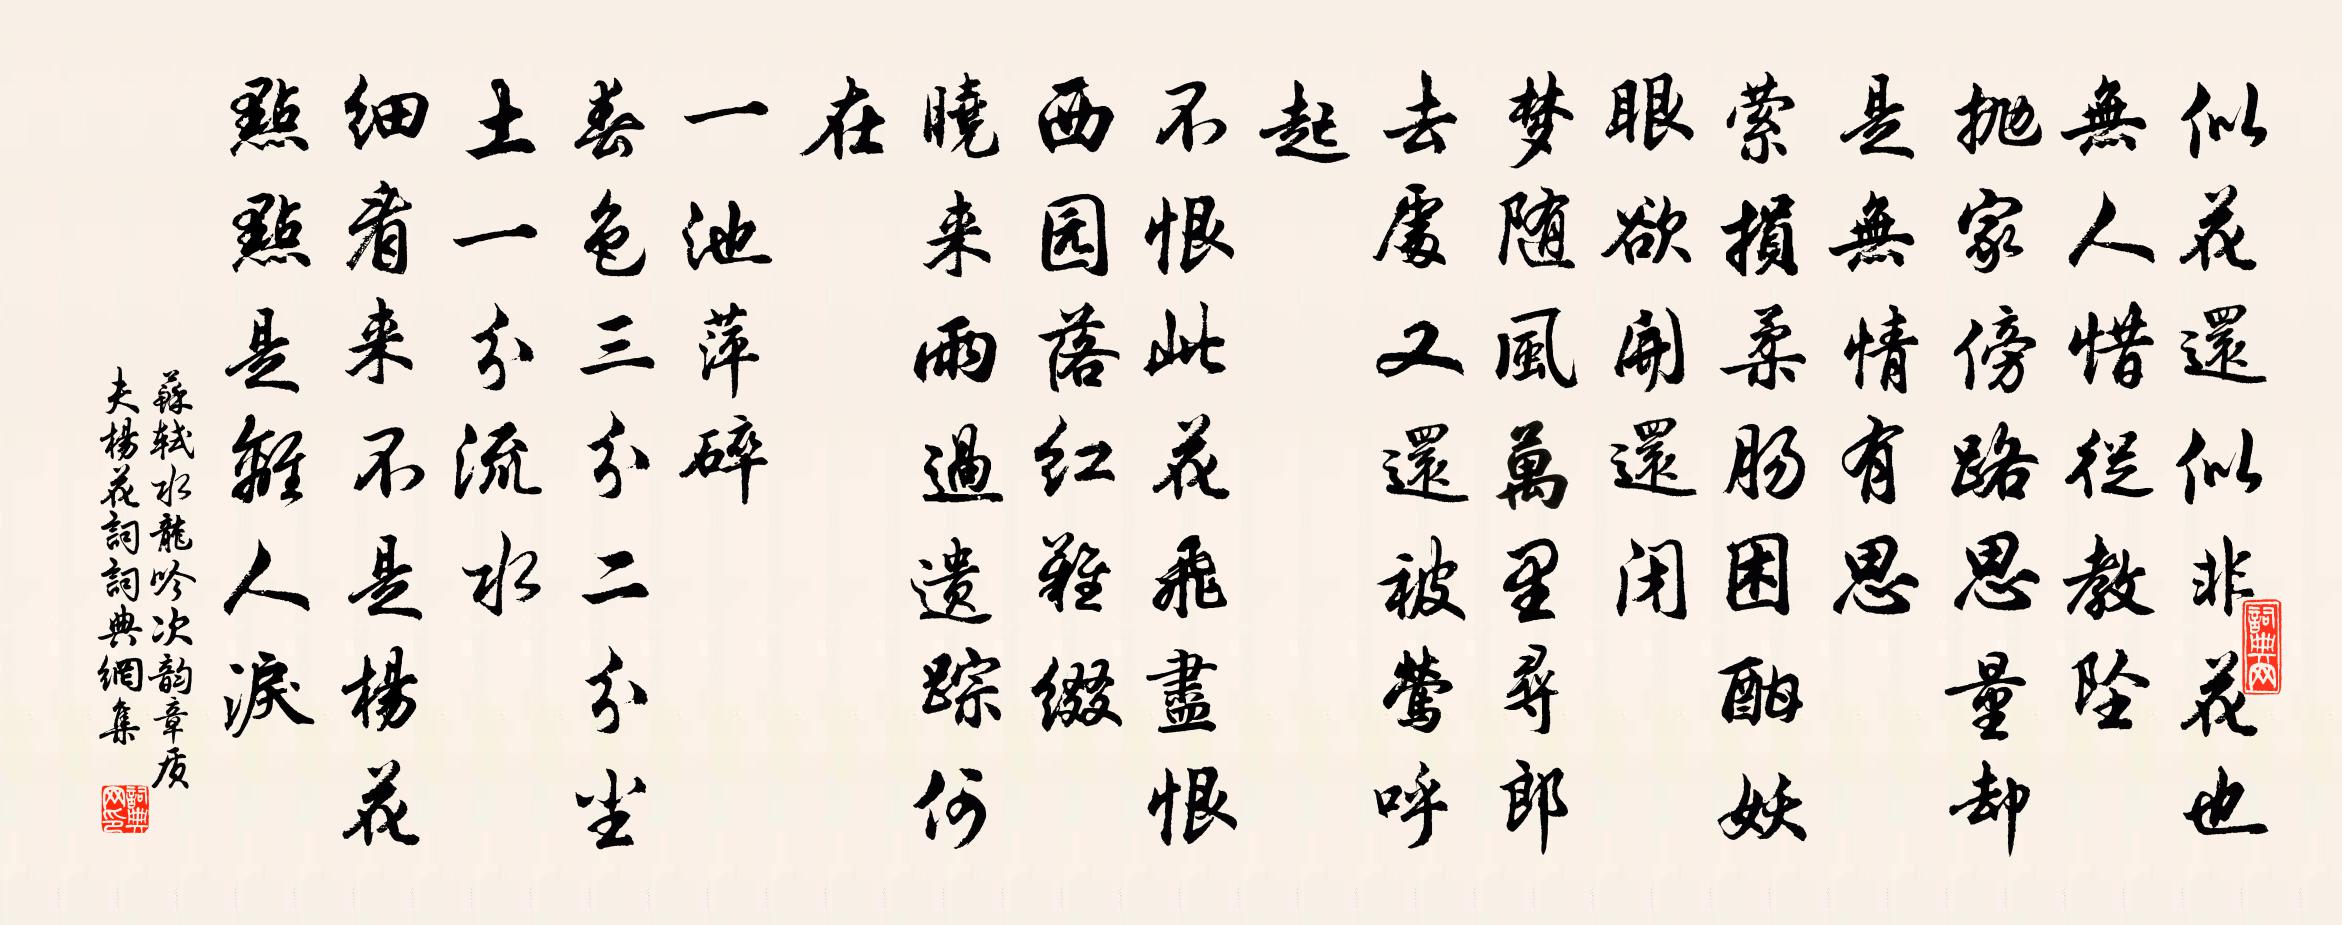 似花還似非花也
無人惜從教墜
抛家傍路思量却
是無情有思
萦損柔肠困酣妖
眼欲開還闭
梦随風萬里尋郎
去處又還被莺呼
起
不恨此花飛盡恨
西园落红難缀
曉来雨過遗踪何
在
一池萍碎
春色三分二分尘
土一分流水
细看来不是楊花
點點是離人淚
蘇轼水龍吟次韵章质
夫楊花詞詞典網集
詞典网
詞典网印